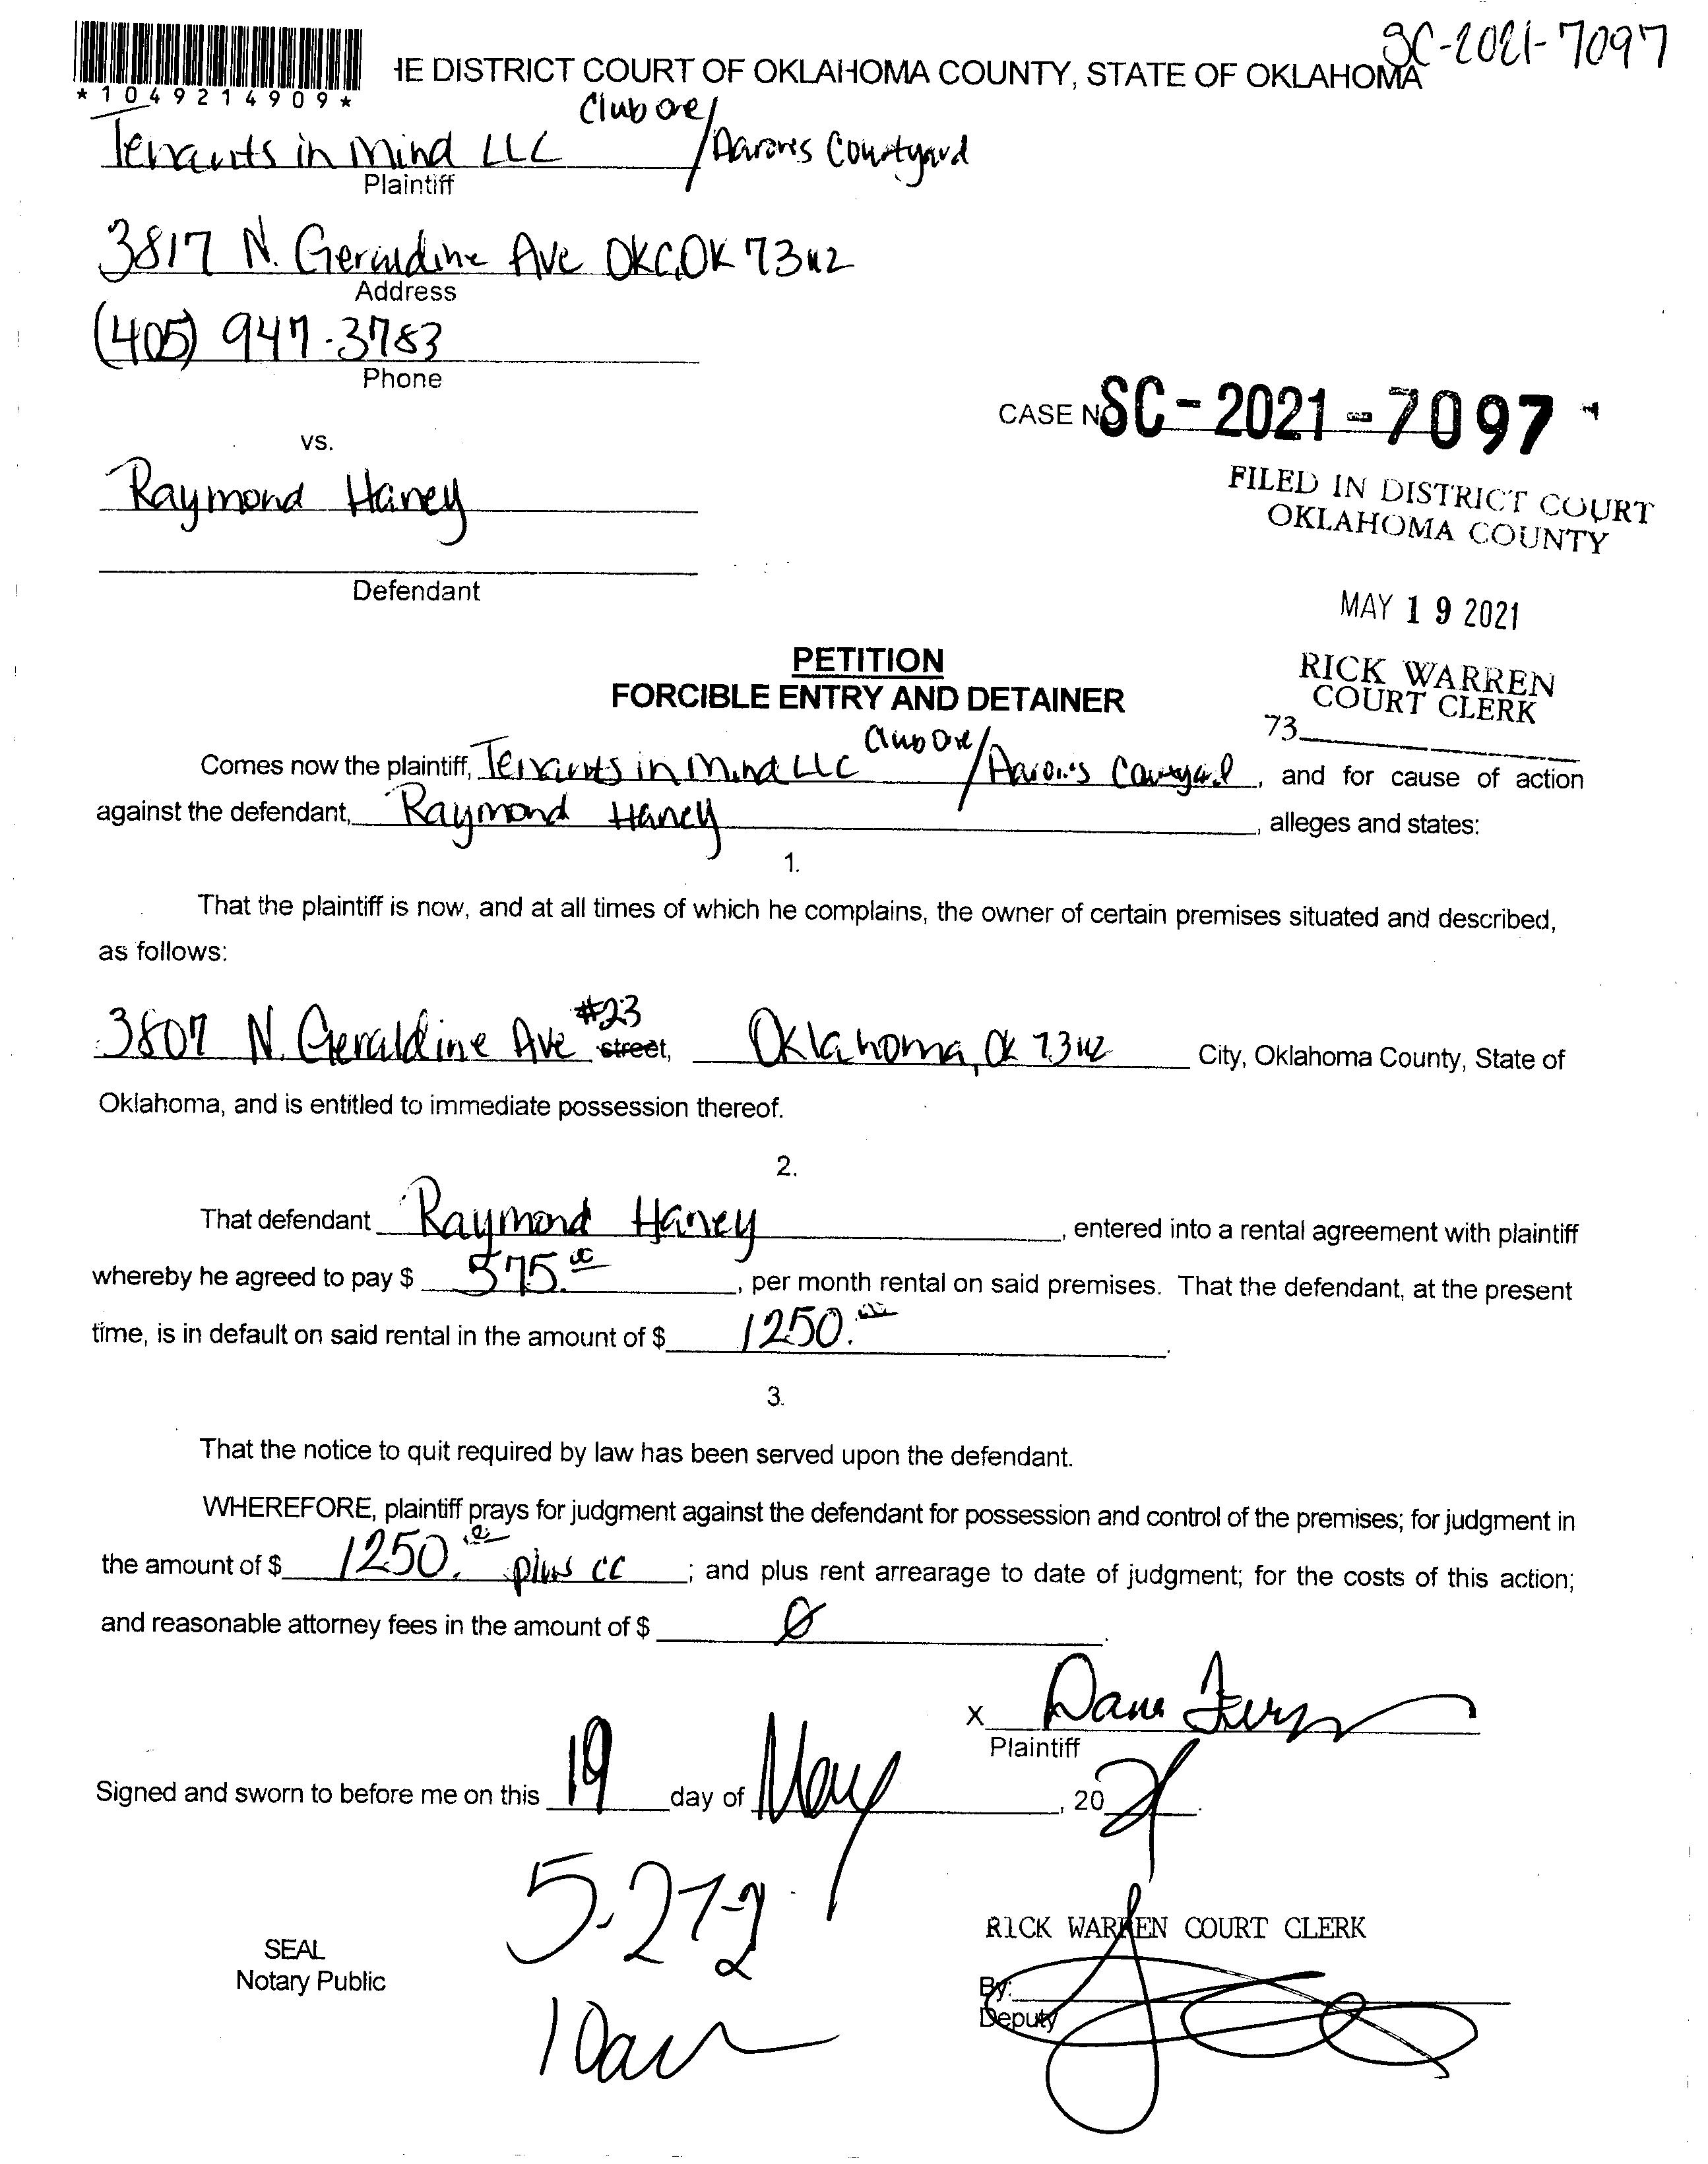 SC-2021-7097
*1049214909*
HE DISTRICT COURT OF OKLAHOMA COUNTY, STATE OF OKLAHOMA
Tenants in Mind LLC Club One/Aarons Courtyard
Plaintiff
3817 N. Geraldine Ave OKC, OK 73112
Address
(405) 947-3783
Phone
CASE NO SC-2021-7097
vs.
Raymond Haney
Defendant
FILED IN DISTRICT COURT
OKLAHOMA COUNTY
MAY 19 2021
RICK WARREN
COURT CLERK
73
PETITION
FORCIBLE ENTRY AND DETAINER
Comes now the plaintiff, Tenants in Mind LLC Club One/Aaron's Courtyard, and for cause of action
against the defendant, Raymond Haney, alleges and states:
1.
That the plaintiff is now, and at all times of which he complains, the owner of certain premises situated and described,
as follows:
3807 N. Geraldine Ave #23 street, Oklahoma, OK 73112 City, Oklahoma County, State of
Oklahoma, and is entitled to immediate possession thereof.
2.
That defendant Raymond Haney, entered into a rental agreement with plaintiff
whereby he agreed to pay $ 575.00, per month rental on said premises. That the defendant, at the present
time, is in default on said rental in the amount of $ 1250.00.
3.
That the notice to quit required by law has been served upon the defendant.
WHEREFORE, plaintiff prays for judgment against the defendant for possession and control of the premises; for judgment in
the amount of $ 1250.00 plus CC; and plus rent arrearage to date of judgment; for the costs of this action;
and reasonable attorney fees in the amount of $ Ø.
X Dana
Plaintiff
Signed and sworn to before me on this 19 day of May, 2021.
5-27-21
10am
SEAL
Notary Public
RICK WARREN COURT CLERK
By:
Deputy